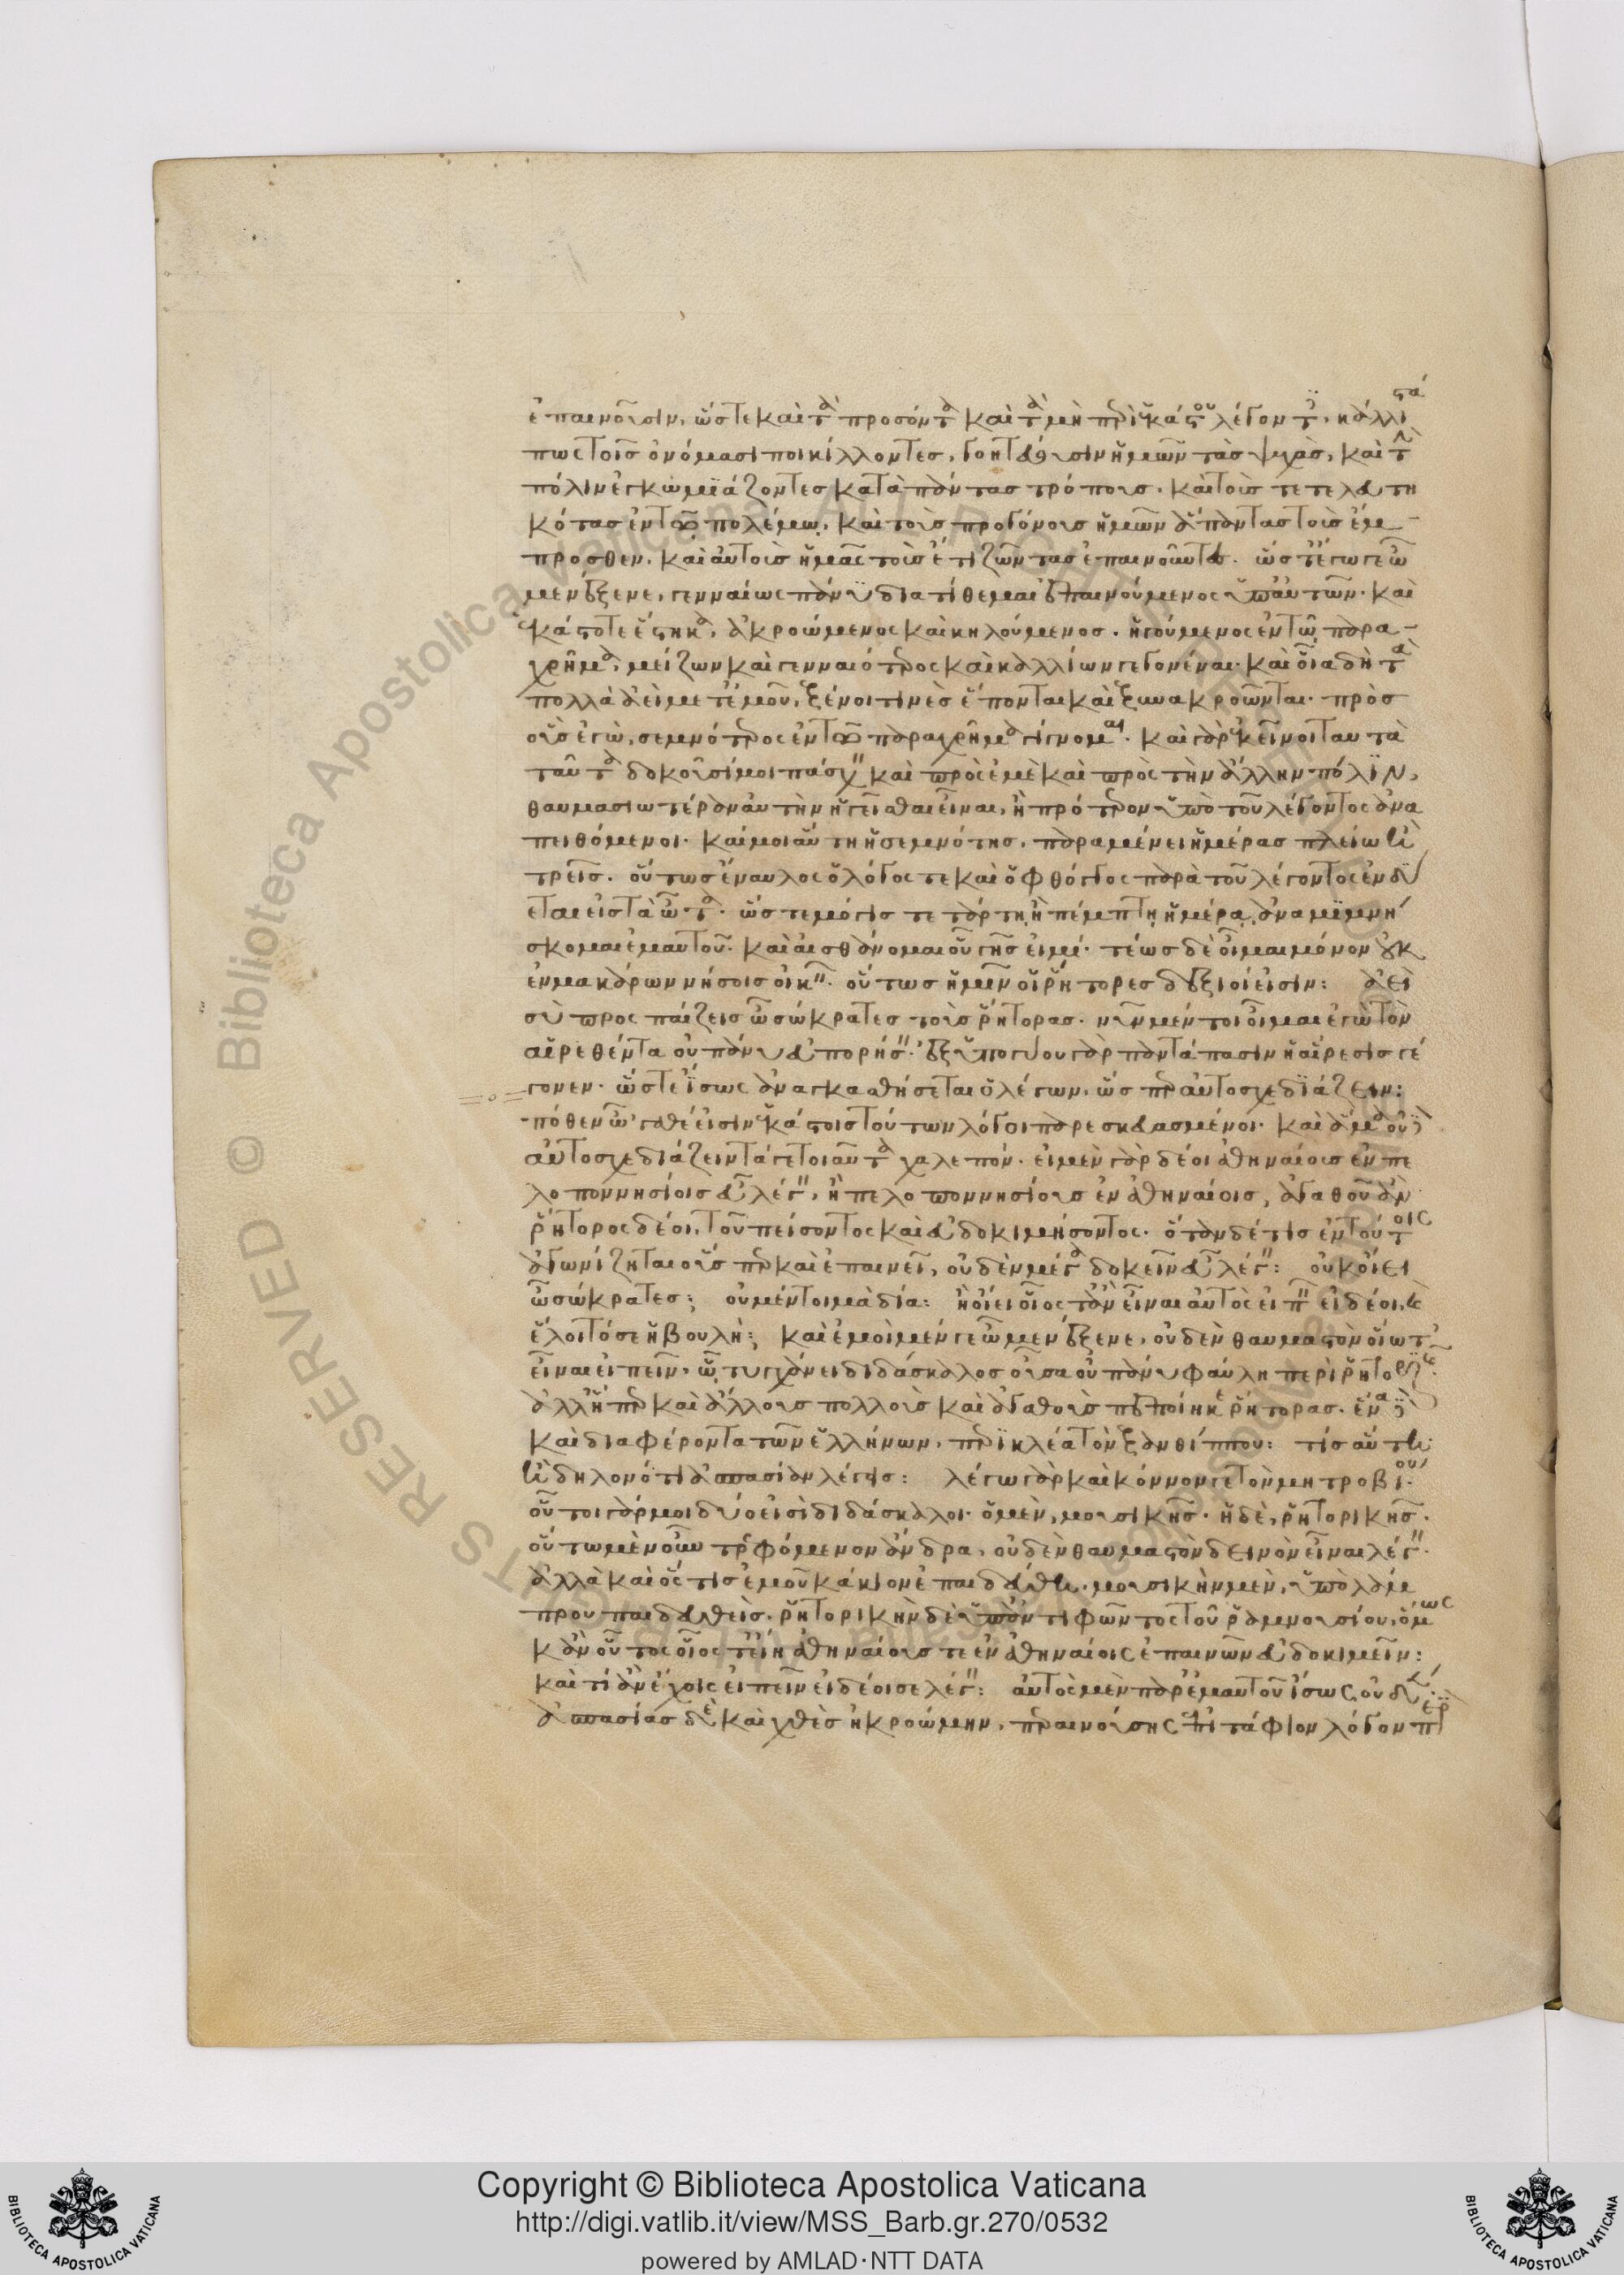 ἐπαινοῦσιν, ὥστε καὶ τὰ προσόντα καὶ τὰ μὴ περὶ ἑκάστου λέγοντες, κάλλιστά
πως τοῖς ὀνόμασι ποικίλλοντες, γοητεύουσιν ἡμῶν τὰς ψυχὰς, καὶ τὴν
πόλιν ἐγκωμϊάζοντες κατὰ πάντας τρόπους. καὶ τοὺς τετελευτη
κότας ἐν τῶ πολέμω, καὶ τοὺς προγόνους ἡμῶν ἅπαντας τοὺς ἔμ-
προσθεν. καὶ αὐτοὺς ἡμᾶς τοὺς ἔτι ζῶντας ἐπαινοῦντες. ὥστ' ἔγωγε ὦ
μενέξενε, γενναίως πάνυ διατίθεμαι ἐπαινούμενος ὑπ' αὐτῶν. καὶ
ἑκάστοτε ἕστηκα, ἀκροώμενος καὶ κηλούμενος. ἡγούμενος ἐν τῶ παρα-
χρῆμα, μείζων καὶ γενναιότερος καὶ καλλίων γεγονέναι. καὶ οἷα δὴ τὰ
πολλὰ ἀεὶ μετ' ἐμοῦ, ξένοι τινὲς ἕπονται καὶ ξυνακροῶνται. πρὸς
οὓς ἐγὼ, σεμνότερος ἐν τῶ παραχρῆμα γίγνομαι. καὶ γὰρ ἐκεῖνοι ταυτὰ
ταῦτα δοκοῦσί μοι πάσχειν καὶ πρὸς ἐμὲ καὶ πρὸς τὴν ἄλλην πόλϊν,
θαυμασιωτέραν αὐτὴν ἡγεῖσθαι εἶναι, ἢ πρότερον ὑπὸ τοῦ λέγοντος ἀνα
πειθόμενοι. καί μοι αὕτη ἡ σεμνότης, παραμένει ἡμέρας πλείω ἢ
τρεῖς. οὕτως ἔναυλος ὁ λόγος τε καὶ ὁ φθόγγος παρὰ τοῦ λέγοντος ἐνδύ
εται εἰς τὰ ὦτα. ὥστε μόγις τετάρτη ἢ πέμπτη ἡμέρα ἀναμϊμνή
σκομαι ἐμαυτοῦ. καὶ αἰσθάνομαι οὗ γῆς εἰμί. τέως δὲ οἶμαι μόνον οὐκ
ἐν μακάρων νήσοις οἰκεῖν. οὕτως ἡμῖν οἱ ῥήτορες δεξιοί εἰσιν: ἀεὶ
σὺ προσπαίζεις ὦ σώκρατες τοὺς ῥήτορας. νῦν μέντοι οἶμαι ἐγὼ τὸν
αἱρεθέντα οὐ πάνυ εὐπορήσειν. ἐξ ὑπογύου γὰρ παντάπασιν ἡ αἵρεσις γέ
γονεν. ὥστε ἴσως ἀναγκασθήσεται ὁ λέγων, ὥσπερ αὐτοσχεδϊάζειν:
πόθεν ὦ 'γαθέ εἰσιν ἑκάστοις τούτων λόγοι παρεσκευασμένοι. καὶ ἅμα οὐδὲ
αὐτοσχεδιάζειν τά γε τοιαῦτα χαλεπόν. εἰ μὲν γὰρ δέοι ἀθηναίους ἐν πε
λοποννησίοις εὖ λέγειν, ἢ πελοποννησίους ἐν ἀθηναίοις, ἀγαθοῦ ἂν
ῥήτορος δέοι, τοῦ πείσοντος καὶ εὐδοκιμήσοντος. ὅταν δέ τις ἐν τούτοις
ἀγωνίζηται οὕσπερ καὶ ἐπαινεῖ, οὐδὲν μέγα δοκεῖν εὖ λέγειν: οὐκ οἴει
ὦ σώκρατες; οὐ μέντοι μὰ δία: ἢ οἴει οἷός τ' ἂν εἶναι αὐτὸς εἰπεῖν εἰ δέοι, καὶ
ἕλοιτό σε ἡ βουλή; καὶ ἐμοὶ μέν γε ὦ μενέξενε, οὐδὲν θαυμαστὸν οἵω τ'
εἶναι εἰπεῖν, ὧ τυγχάνει διδάσκαλος οὖσα οὐ πάνυ φαύλη περὶ ῥητορικῆς.
ἀλλ' ἥπερ καὶ ἄλλους πολλοὺς καὶ ἀγαθοὺς πεποίηκε ῥήτορας. ἕνα δὲ
καὶ διαφέροντα τῶν ἑλλήνων, περϊκλέα τὸν ξανθίππου: τίς αὕτη;
ἢ δηλονότι ἀσπασίαν λέγεις: λέγω γὰρ καὶ κόννον γε τὸν μητροβίου.
οὗτοι γάρ μοι δύο εἰσὶ διδάσκαλοι. ὁ μὲν, μουσικῆς. ἡ δὲ, ῥητορικῆς.
οὕτω μὲν οὖν τρεφόμενον ἄνδρα, οὐδὲν θαυμαστὸν δεινὸν εἶναι λέγειν.
ἀλλὰ καὶ ὅστις ἐμοῦ κάκιον ἐπαιδεύθη, μουσικὴν μὲν, ὑπὸ λάμ
πρου παιδευθεὶς. ῥητορικὴν δὲ ὑπ' ἀντιφῶντος τοῦ ῥαμνουσίου, ὅμως
κἂν οὗτος οἷός τ' εἴη ἀθηναίους τε ἐν ἀθηναίοις ἐπαινῶν εὐδοκιμεῖν:
καὶ τί ἂν ἔχοις εἰπεῖν εἰ δέοι σε λέγειν: αὐτὸς μὲν παρ' ἐμαυτοῦ ἴσως οὐδέν.
ἀσπασίας δὲ καὶ χθὲς ἠκροώμην, περαινούσης ἐπιτάφιον λόγον περὶ
Copyright © Biblioteca Apostolica Vaticana
http://digi.vatlib.it/view/MSS_Barb.gr.270/0532
powered by AMLAD·NTT DATA
BIBLIOTECA APOSTOLICA VATICANA
BIBLIOTECA APOSTOLICA VATICANA